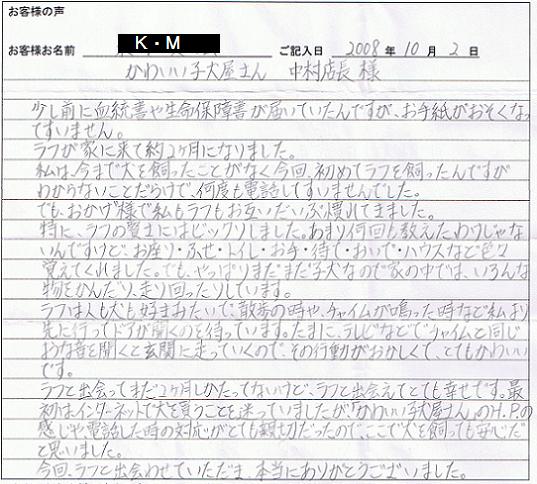 お客様の声
お客様お名前 K・M ご記入日 2008年 10月 2日
かわいい子犬屋さん 中村店長 様
少し前に血統書や生命保障書が届いていたんですが、お手紙がおそくなっ
てすいません。
ラフが家に来て約2ヶ月になりました。
私は、今まで犬を飼ったことがなく今回、初めてラフを飼ったんですが
わからないことだらけで、何度も電話してすいませんでした。
でも、おかげ様で私もラフもお互いだいぶ慣れてきました。
特に、ラフの賢さにはビックリしました。あまり何回も教えたわけじゃな
いんですけど、お座り・ふせ・トイレ・お手・待て・おいで・ハウスなど色々
覚えてくれました。でも、やっぱりまだまだ子犬なので家の中では、いろんな
物をかんだり、走り回ったりしています。
ラフは人も犬も好きみたいで、散歩の時や、チャイムが鳴った時など私より
先に行ってドアが開くのを待っています。たまに、テレビなどでチャイムと同じ
ような音を聞くと玄関に走っていくので、その行動がおかしくて、とてもかわいい
です。
ラフと出会ってまだ2ヶ月しかたってないけど、ラフと出会えてとても幸せです。最
初は、インターネットで犬を買うことを迷っていましたが「かわいい子犬屋さん」のH.P.の
感じや電話した時の対応がとても親切だったので、ここで犬を飼っても安心だ
と思いました。
今回、ラフと出会わせていただき、本当にありがとうございました。